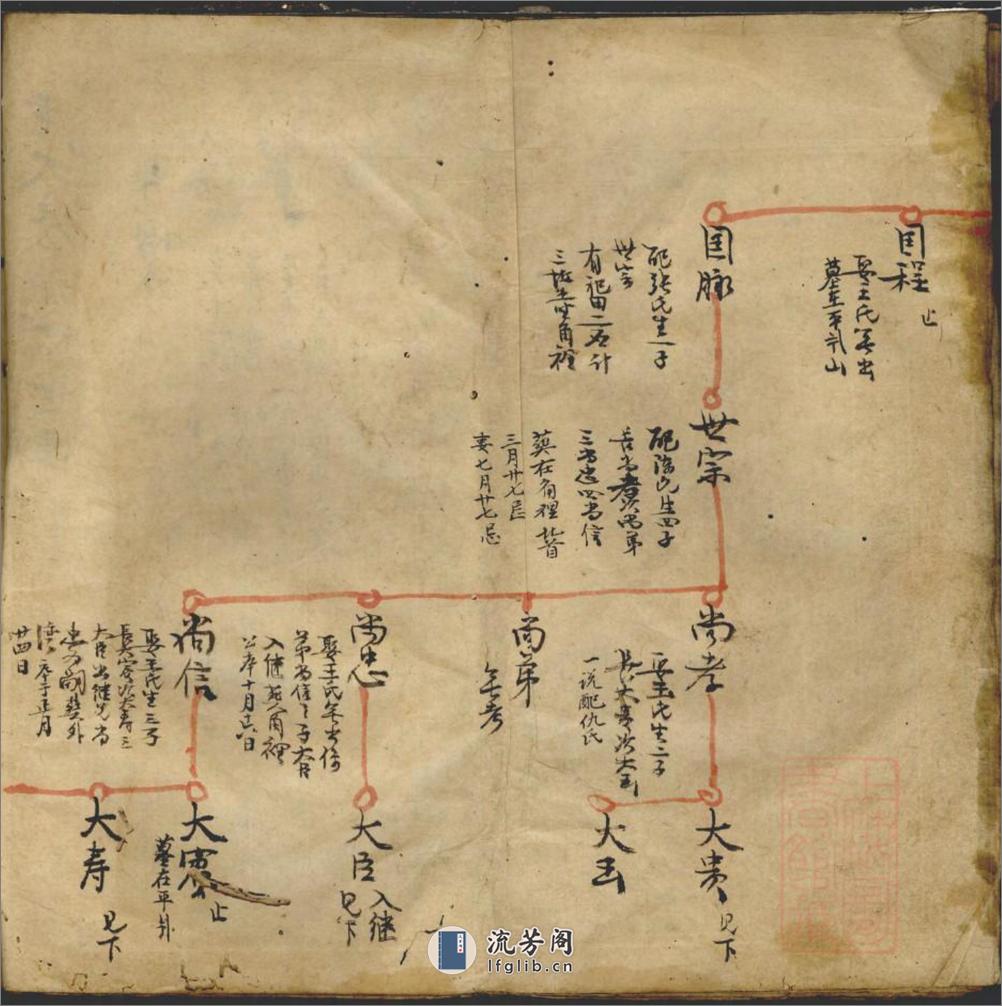 国程
止
娶王氏無出
墓在平
山
国脉
配張氏生一子
世宗
有祀田二石計
三坵坐址角裡
世宗
配陈氏生四子
長尚孝次尚弟
三尚忠四尚信
葬在角裡
三月廿七忌
妻七月廿七忌
尚孝
娶王氏生二子
長大貴次大玉
一说配仇氏
尚弟
無考
尚忠
娶王氏無出侍
弟尚信之子大臣
入继葬角裡
公卒十月
日
尚信
娶王氏生三子
長大賓次大寿三
大臣出继兄尚
忠
葬外
卒于正月
廿四日
大贵
见下
大玉
大臣
入继
见下
大賓
止
墓在平
大寿
见下
流芳阁
lfglib.cn